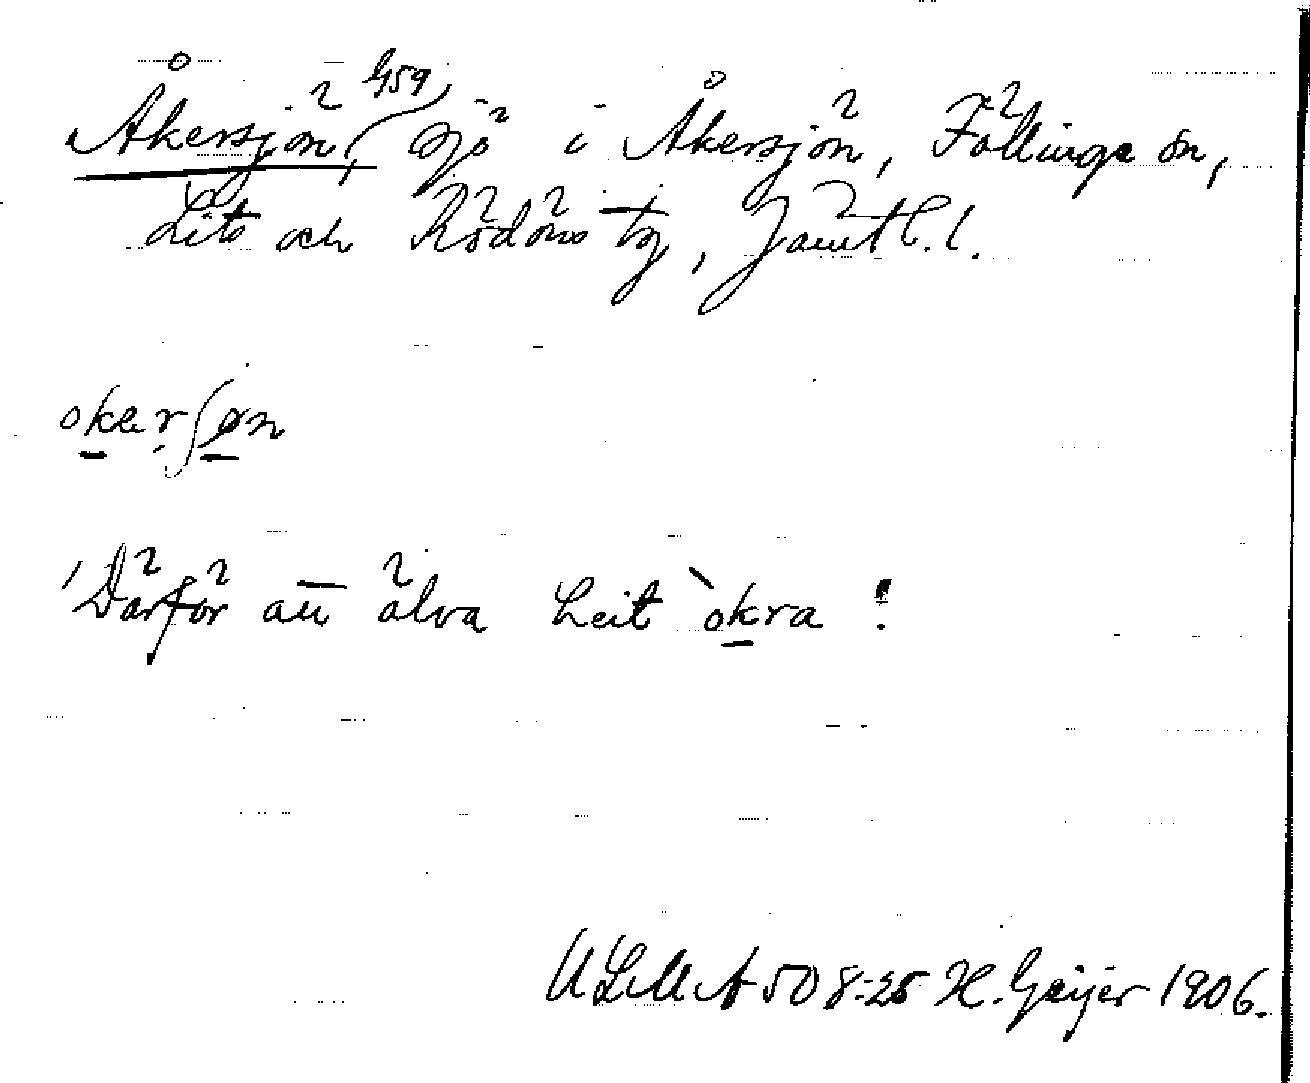 Åkersjön, 459 sjö i Åkersjön, Föllinge sn,
Lits och Rödöns tg, Jämtl. l.
okerʃøn
'Därför att älva heit `okra'.
ULMA 508:25 H. Geijer 1906.